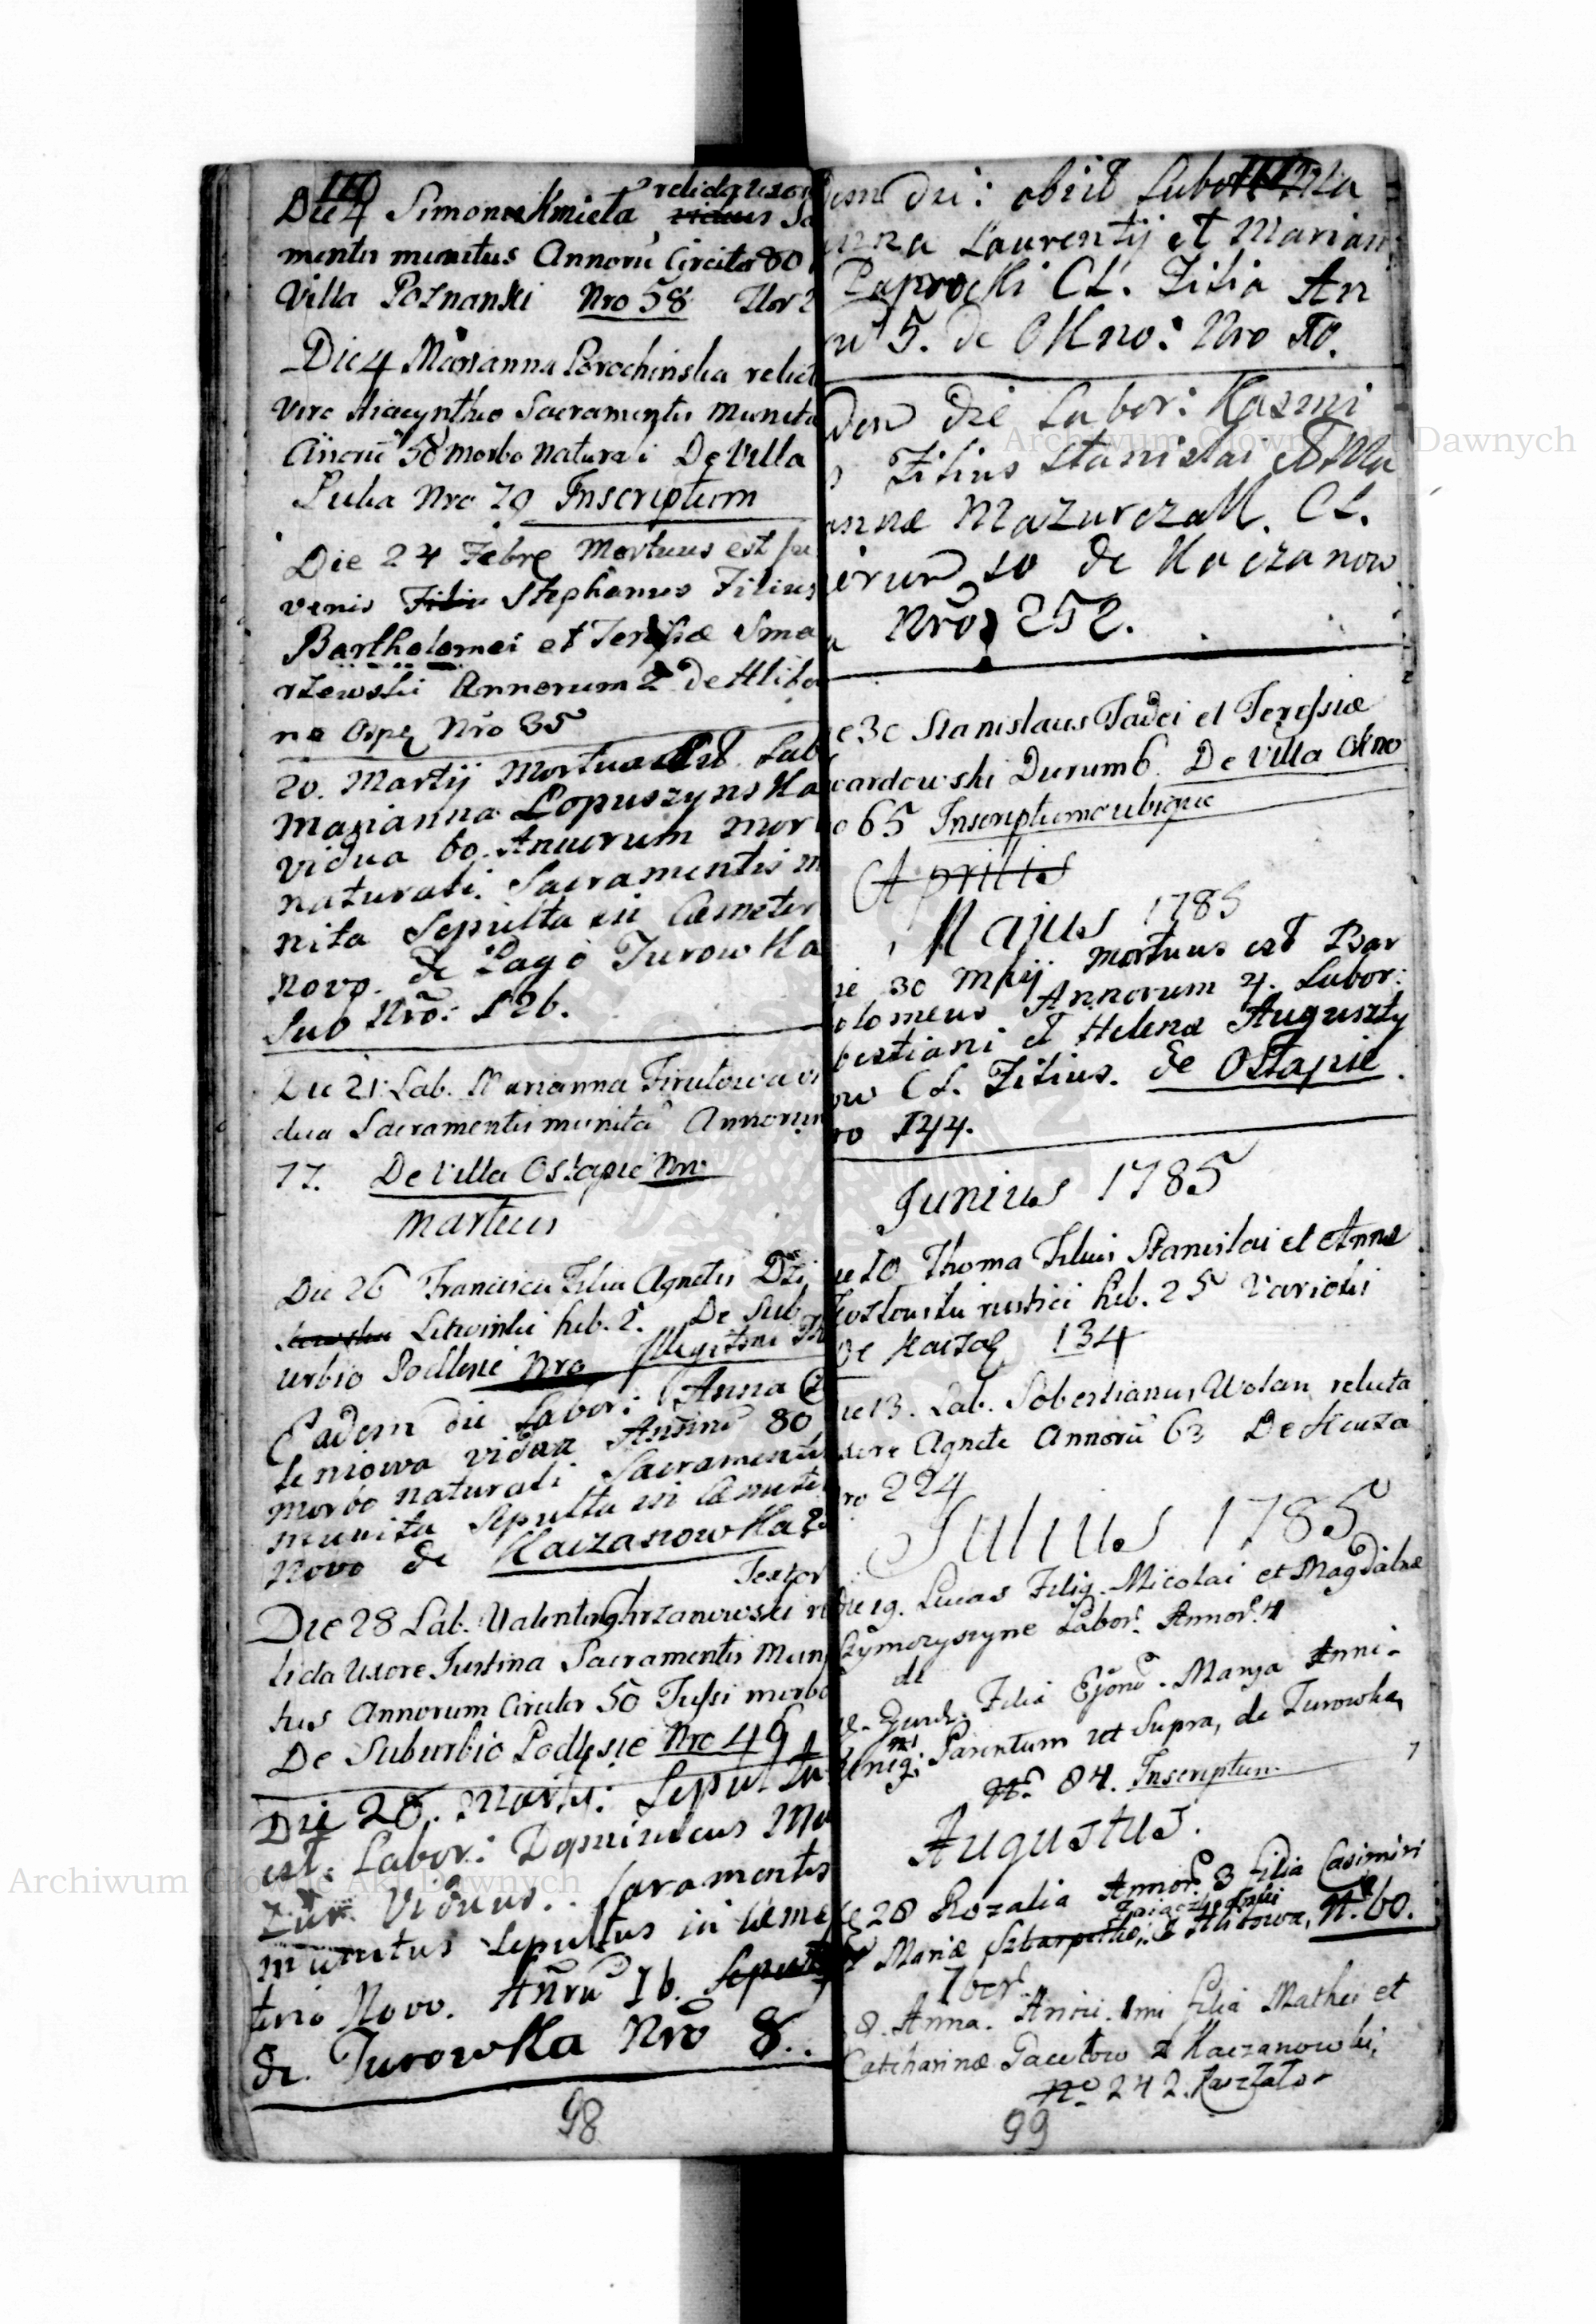 Die 4 Simon Kmieta relicta uxor
mentis munitus Annorū Circiter 80
Villa Poznanki Nro 58
Die 4 Marianna Porochinska relict
Viro Hiacyntho Sacramentis munita
Añorū 58 morbo naturali De Villa
Luka Nro 79 Inscriptum
Die 24 Febre Mortuus est Ju
venis Filiu Stephanus Filius
Bartholomei et Teressiæ Sma
rzewski Annorum 2 de Hlibo
Nro 35
20. Martij Mortua Est Lab
Marianna Łopuszynska
vidua 60. Annorum mor
naturali. Sacramentis m
nita Sepulta in Cæmeter
novo. de Pago Turowka
Sub Nrō: 126.
Die 21 Lab. Marianna Firutowa vi
dua Sacramentis munita Annorum
77. De Villa Ostapie Nro
Martius
Die 26 Francisca Filia Agnetis Dzi
Litwinki heb. 2. De Sub
urbio Podlesie Nro Illegitimi
Eadem die Labor: Anna
leniowa vidua Annorū 80
morbo naturali Sacramentis
munita Sepulta in Cæmete
Novo de Kaczanowka
Textor
Die 28 Lab. Valentin Chrzanowski re
licta Uxore Justina Sacramentis Muni
tus Annorum Circiter 50 Tussi morbo
De Suburbio Podlesie Nro 46
Die 28. Martij: Sepultu
est. Labor: Dominicus Ma
zur Viduus. Saramentis
munitus Sepultus in Cæme
terio Novo. Añrū 76.
de Turowka Nrō 8.
98
dem die: obiit Labor
nna Laurentij et Mariann
Paprocki CL. Filia An
nū 5. de Okno: Nro 10.
dem die Labor: Kazmi
Filius Stanislai et Ma
annæ Mazurczak. CL.
orum 10 de Kaczanow
Nrō 252.
e 30 Stanislaus Tadei et Teressiæ
wardowski Dierum 6. De Villa Okno
o 65 Inscriptum ubique
Aprilis
Majus 1785
ie 30 Maij mortuus est Bar
olomeus Annorum 4. Labor:
bestiani et Helenæ Auguszty
ow CL. Filius. de Ostapie.
ro 144.
Junius 1785
ie 10 Thoma Filius Stanislai et Annæ
Kozlowski rustici heb. 25 Variolis
De Kaczan 134
ie 13. Lab. Sobestianus Wolan relicta
uxore Agnete Annorū 63 De Kacza
ro 224
Julius 1785
Die 19. Lucas Filiq. Micolai et Magdalnæ
Szymczyszyne Labor. Annor. 4
de
Filia Ejond. Marya Anni-
Parentum ut Supra, de Turowka,
No. 84. Inscriptum
Augustus.
28 Rozalia Annor. 3 filia Casimiri
Zaiączkowski
et Mariæ Szkarpetki, Nº. 60.
7ber.
8. Anna. Anni. 1mi filia Mathei et
Catharinæ Gacków z Kaczanowki,
Nº. 242.
99
Archiwum Główne Akt Dawnych
Archiwum Główne Akt Dawnych